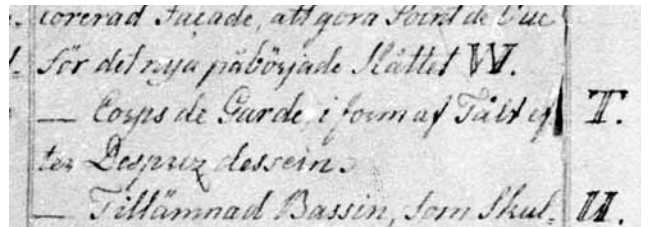 corerad Façade, att göra Point de Vue
för det nya påbörjade Slåttet W.
— Corps de Garde, i form af Tält ef T.
ter Desprez dessein.
— Tillämnad Bassin, som Skul- U.